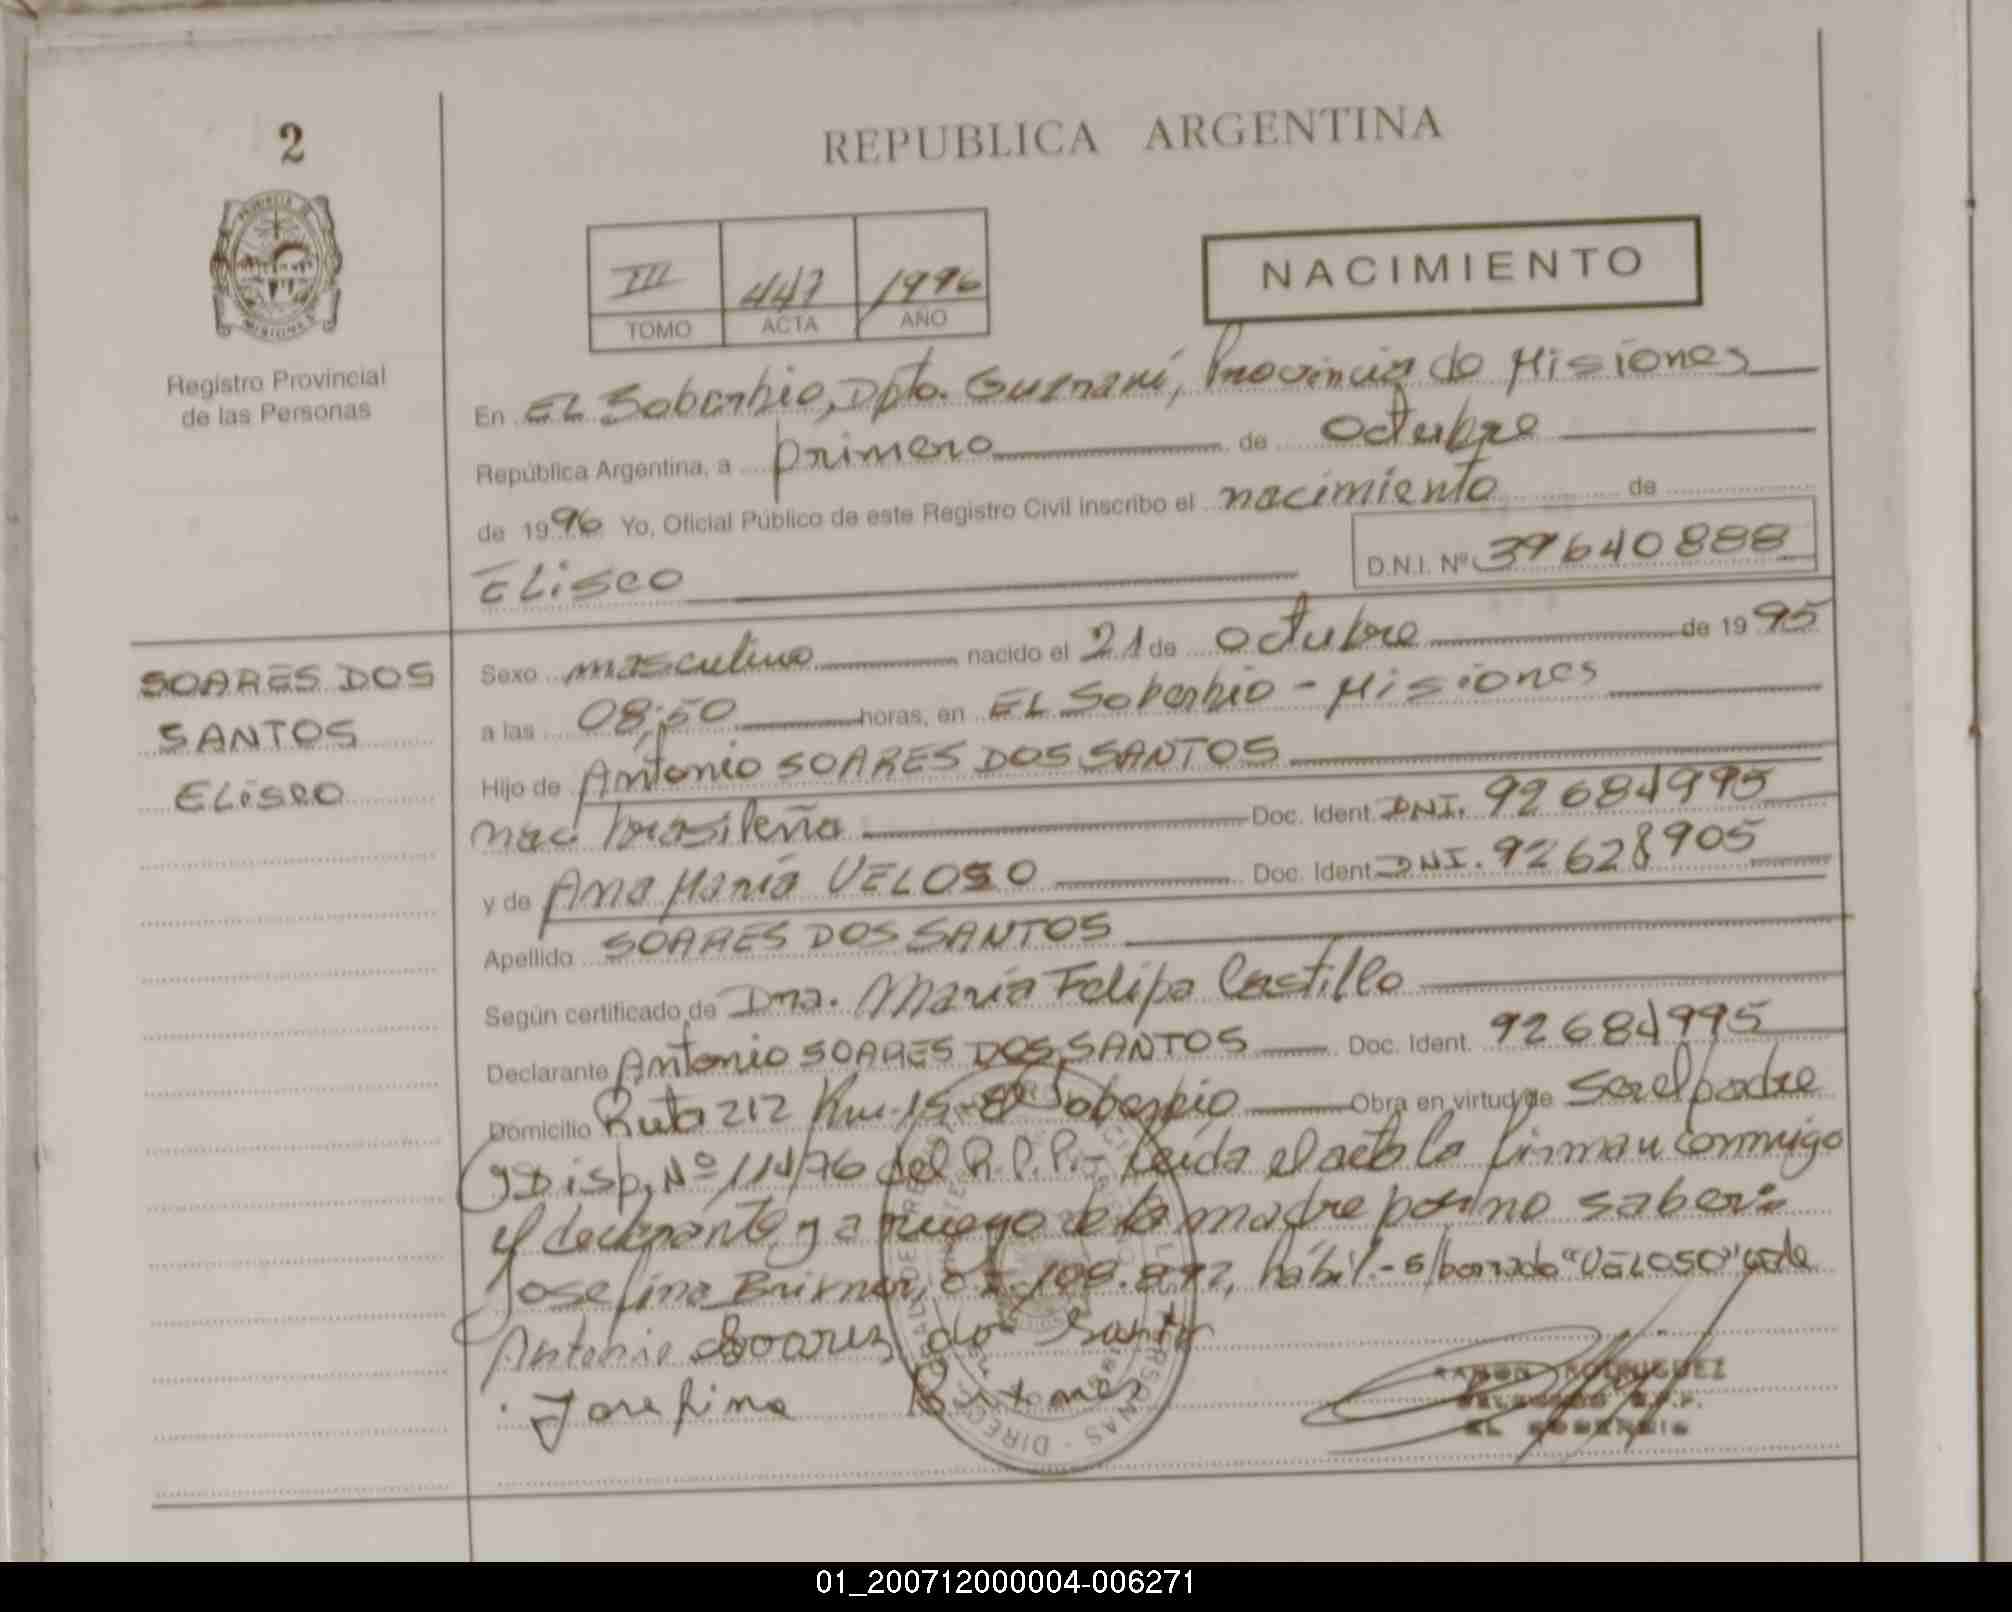 2
REPUBLICA ARGENTINA
III 447 1996
TOMO ACTA AÑO
NACIMIENTO
Registro Provincial
de las Personas
En EL Soberbio, Dpto. Guaraní, Provincia de Misiones
República Argentina, a primero de octubre
de 1996 Yo, Oficial Público de este Registro Civil inscribo el nacimiento de
ELiseo D.N.I. Nº 39640888
SOARES DOS
SANTOS
ELiseo
Sexo masculino nacido el 21 de octubre de 1995
a las 08;50 horas, en EL Soberbio - Misiones
Hijo de Antonio SOARES DOS SANTOS
nac. brasileña Doc. Ident. DNI. 92684995
y de Ana María VELOSO Doc. Ident. DNI. 92628905
Apellido SOARES DOS SANTOS
Según certificado de Dra. María Felipa Castillo
Declarante Antonio SOARES DOS SANTOS Doc. Ident. 92684995
Domicilio Ruta 212 Km. 15 - El Soberbio Obra en virtud de ser el padre
y Disp. Nº 114/76 del R.P.P.- Leída el acta la firman conmigo
el declarante y a ruego de la madre por no saber:
Josefina 108.892, hábil.- s/borrado "VELOSO" vale
Antonio Soares dos Santos
Josefina
RAMON RODRIGUEZ
DELEGADO R.P.P.
EL SOBERBIO
01_200712000004-006271